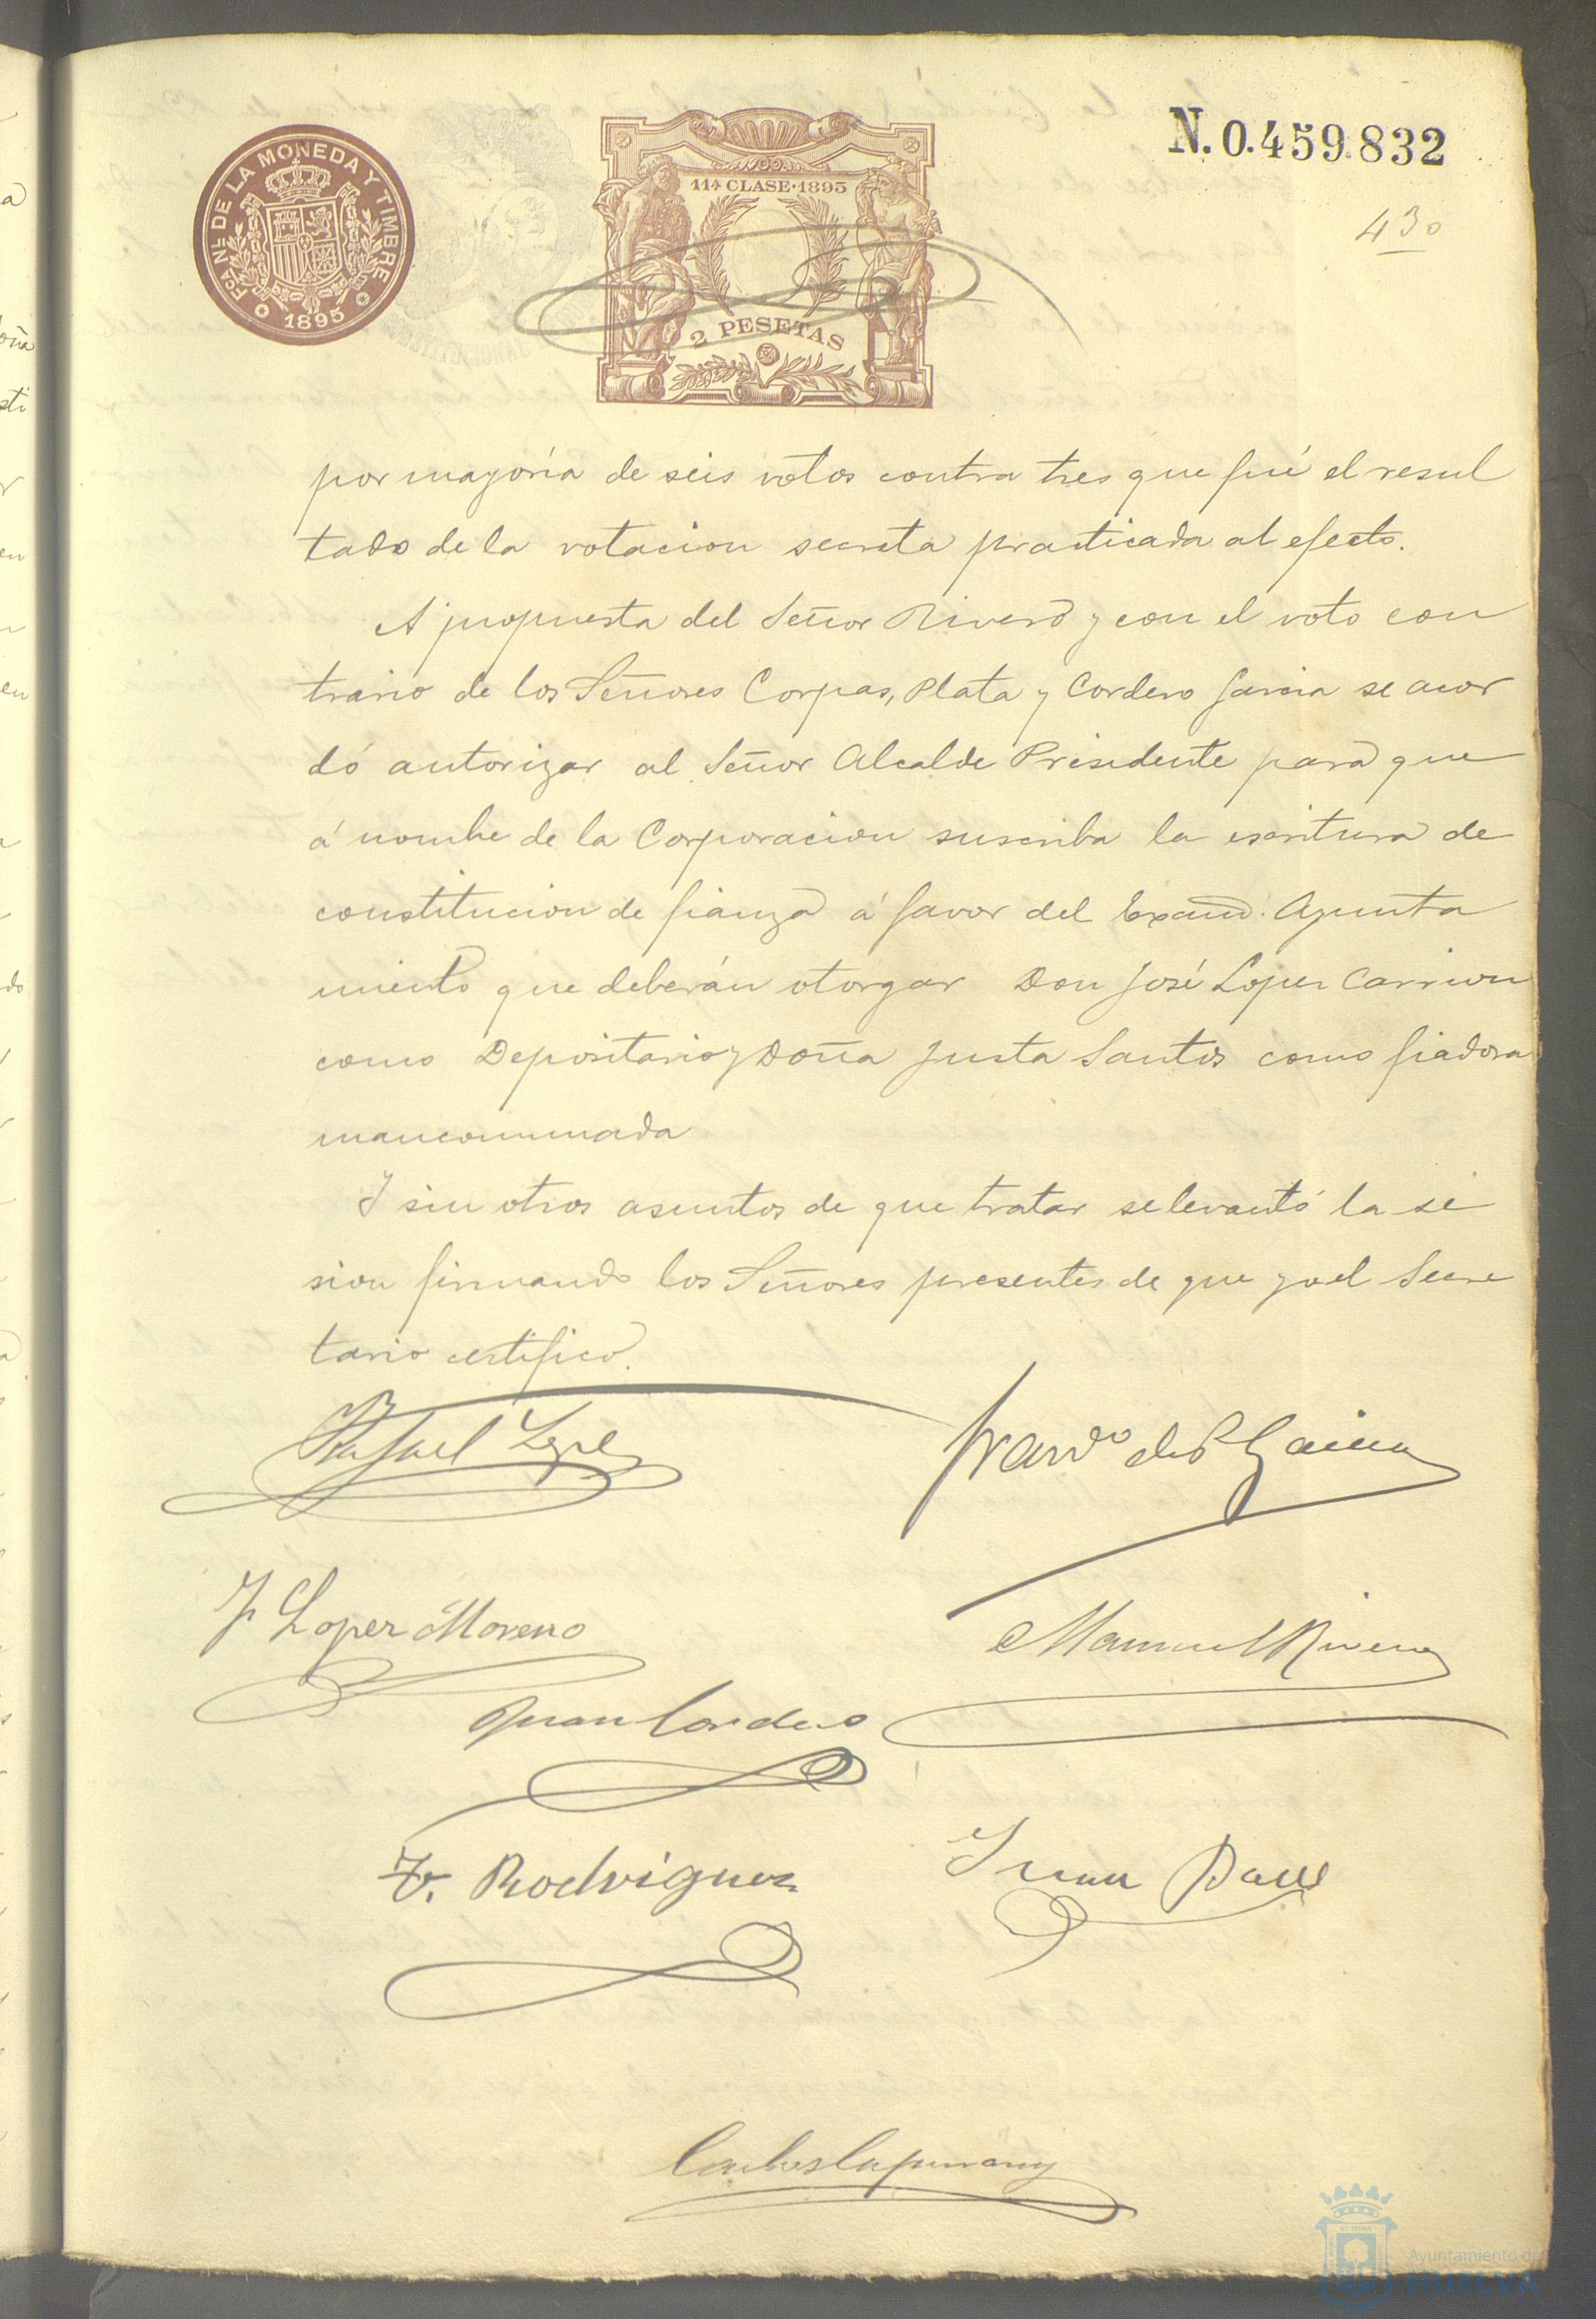 FCA NL DE LA MONEDA Y TIMBRE
1895
11ª CLASE·1895
2 PESETAS
N.0.459.832
430
por mayoría de seis votos contra tres que fué el resul
tado de la votacion secreta practicada al efecto.
A propuesta del Señor Rivero y con el voto con
trario de los Señores Corpas, Plata y Cordero Garcia se acor
dó autorizar al Señor Alcalde Presidente para que
á nombre de la Corporacion suscriba la escritura de
constitucion de fianza á favor del Excmo. Ayunta
miento que deberán otorgar Don José Lopez Carrion
como Depositario y Doña Justa Santos como fiadora
mancomunada
Y sin otros asuntos de que tratar se levantó la se
sion firmando los Señores presentes de que yo el Secre
tario certifico.
Rafael
de P. Garcia
J Lopez Moreno
Manuel Rivero
Juan Cordero
F. Rodriguez
Juan
Carlos
Ayuntamiento de
HUELVA